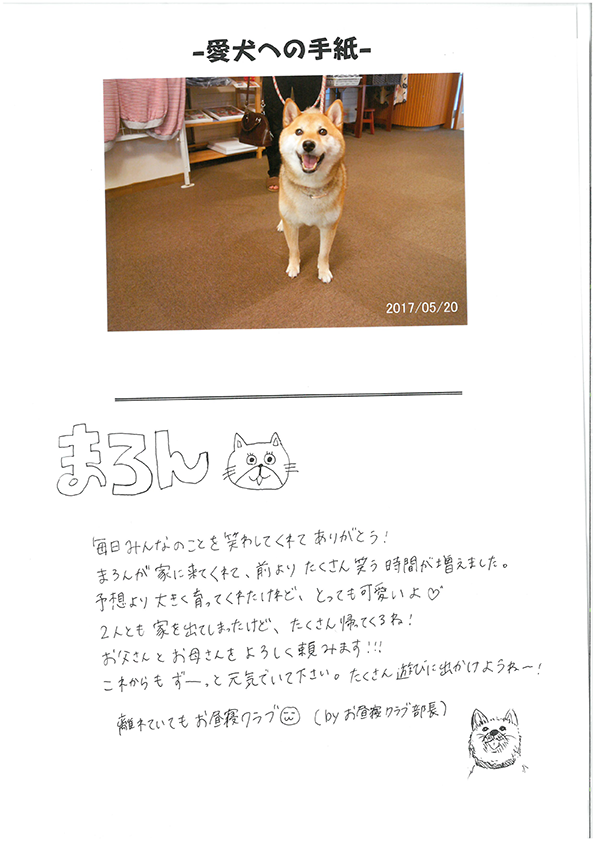 -愛犬への手紙-
2017/05/20
まろん
毎日みんなのことを笑わしてくれてありがとう!
まろんが家に来てくれて、前よりたくさん笑う時間が増えました。
予想より大きく育ってくれたけれど、とっても可愛いよ♡
2人とも家を出てしまったけど、たくさん帰ってくるね!
お父さんとお母さんをよろしく頼みます!!!
これからもずーっと元気でいて下さい。たくさん遊びに出かけようね〜!
離れていてもお昼寝クラブ☺ (byお昼寝クラブ部長)